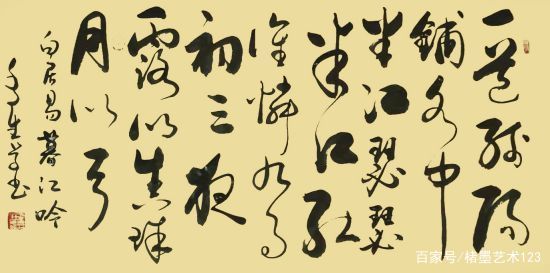 一道殘陽
鋪水中
半江瑟瑟
半江紅
誰憐九月
初三夜
露似真珠
月似弓
白居易暮江吟
百家号/楮墨艺术123